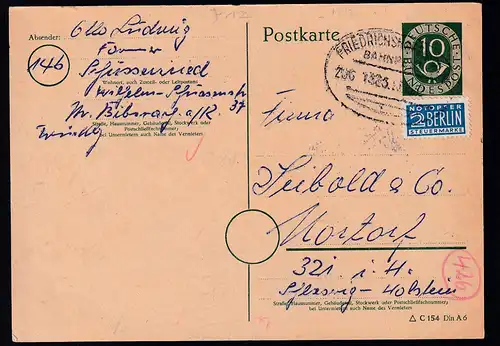 7712
Absender:
Otto Ludwig
Former
14b
Schussenried
Wohnort, auch Zustell- oder Leitpostamt
Wilhelm-Schussenstr. 37
Kr. Biberach a/R.
Straße, Hausnummer, Gebäudeteil, Stockwerk oder
Postschließfachnummer;
bei Untermietern auch Name des Vermieters
Postkarte
FRIEDRICHSH
BAHNP
ZUG 1325
DEUTSCHE
BUNDESPOST
10
NOTOPFER
2 BERLIN
STEUERMARKE
Firma
Seibold & Co.
Nortorf
321 i. H.
Schleswig-Holstein
Straße, Hausnummer, Gebäudeteil, Stockwerk oder Postschließfachnummer;
bei Untermietern auch Name des Vermieters
△ C 154 Din A 6